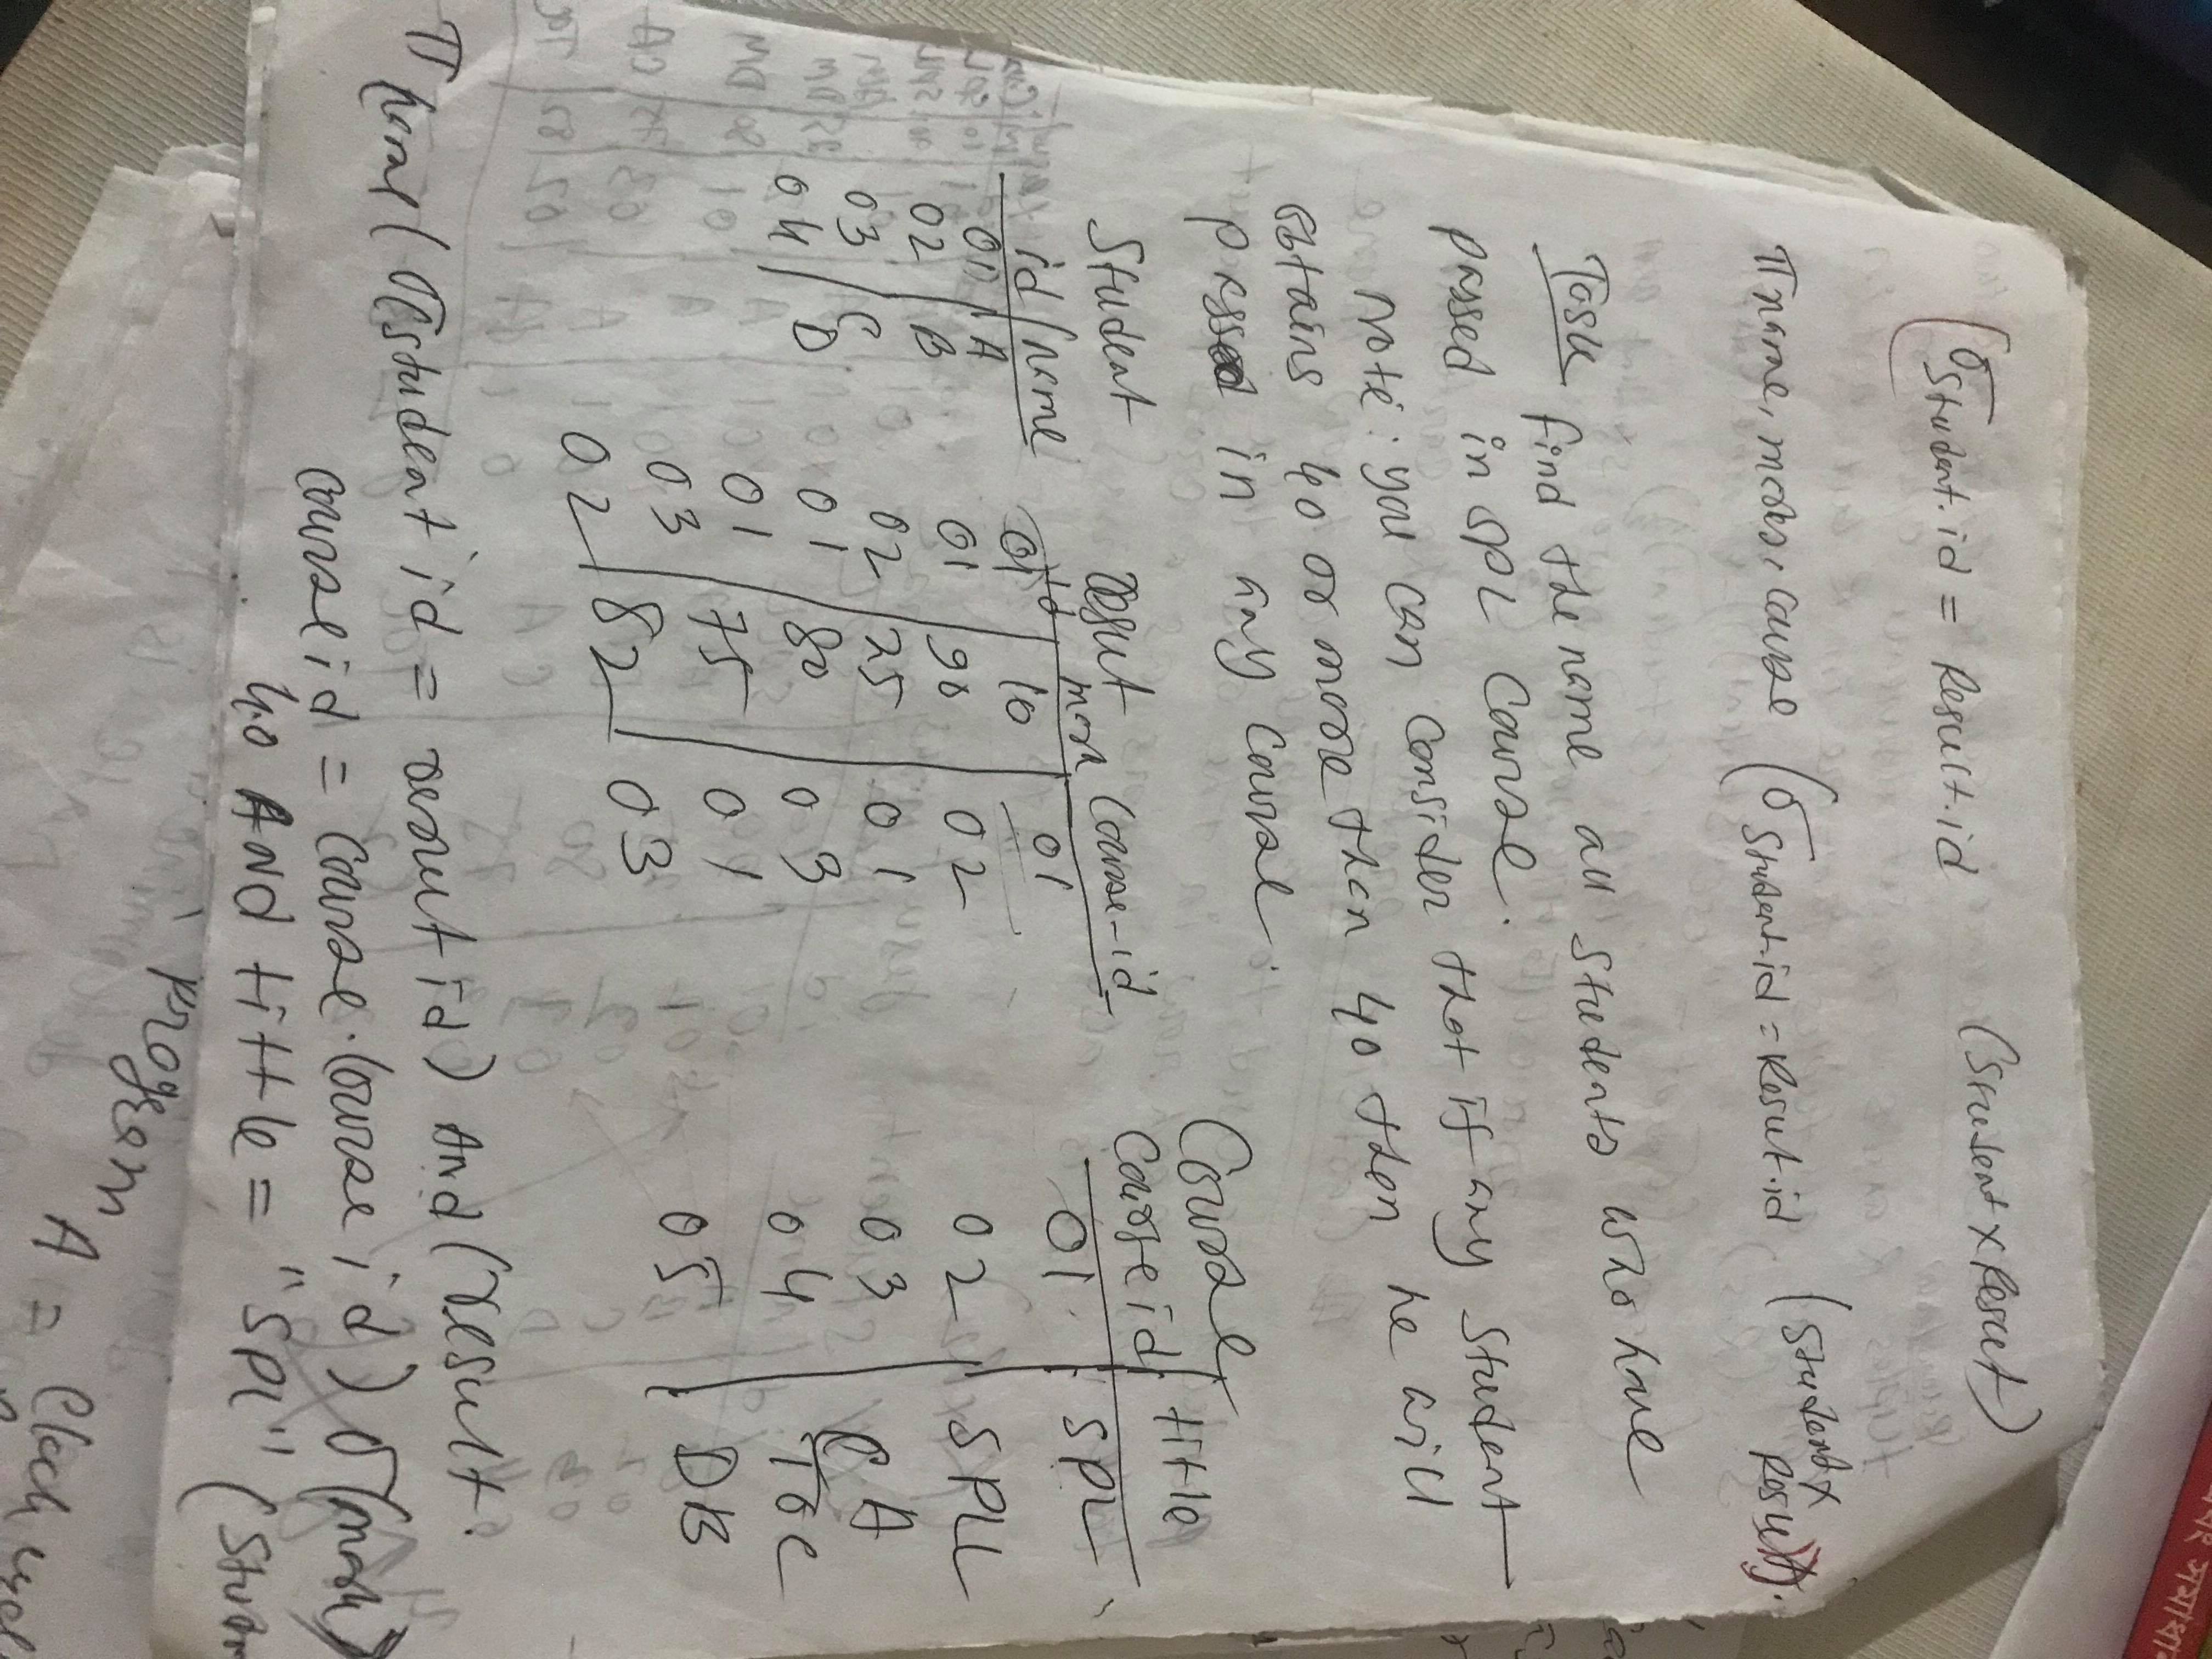 এবং সমাধান
(σ Student.id = Result.id (Student x Result)
π name, marks, course (σ Student.id = Result.id (Student x Result)).
Task find the name all students who have
passed in SPL Course.
Note: you can consider that if any student
obtains 40 or more than 40 then he will
passed in any course.
Student
id name
01 A
02 B
03 C
04 D
result
id mark Course-id
01 10 01
01 90 02
02 25 01
01 80 03
01 75 01
03 82 03
02
Course
Course id title
01 SPL
02 SPLL
03 CA
04 TOC
05 DB
π name (σ(student id = result id) And (result.
course id = course.course id) σ(mark)
40 And tittle = "SPL" (Stud
Program
A = Clock